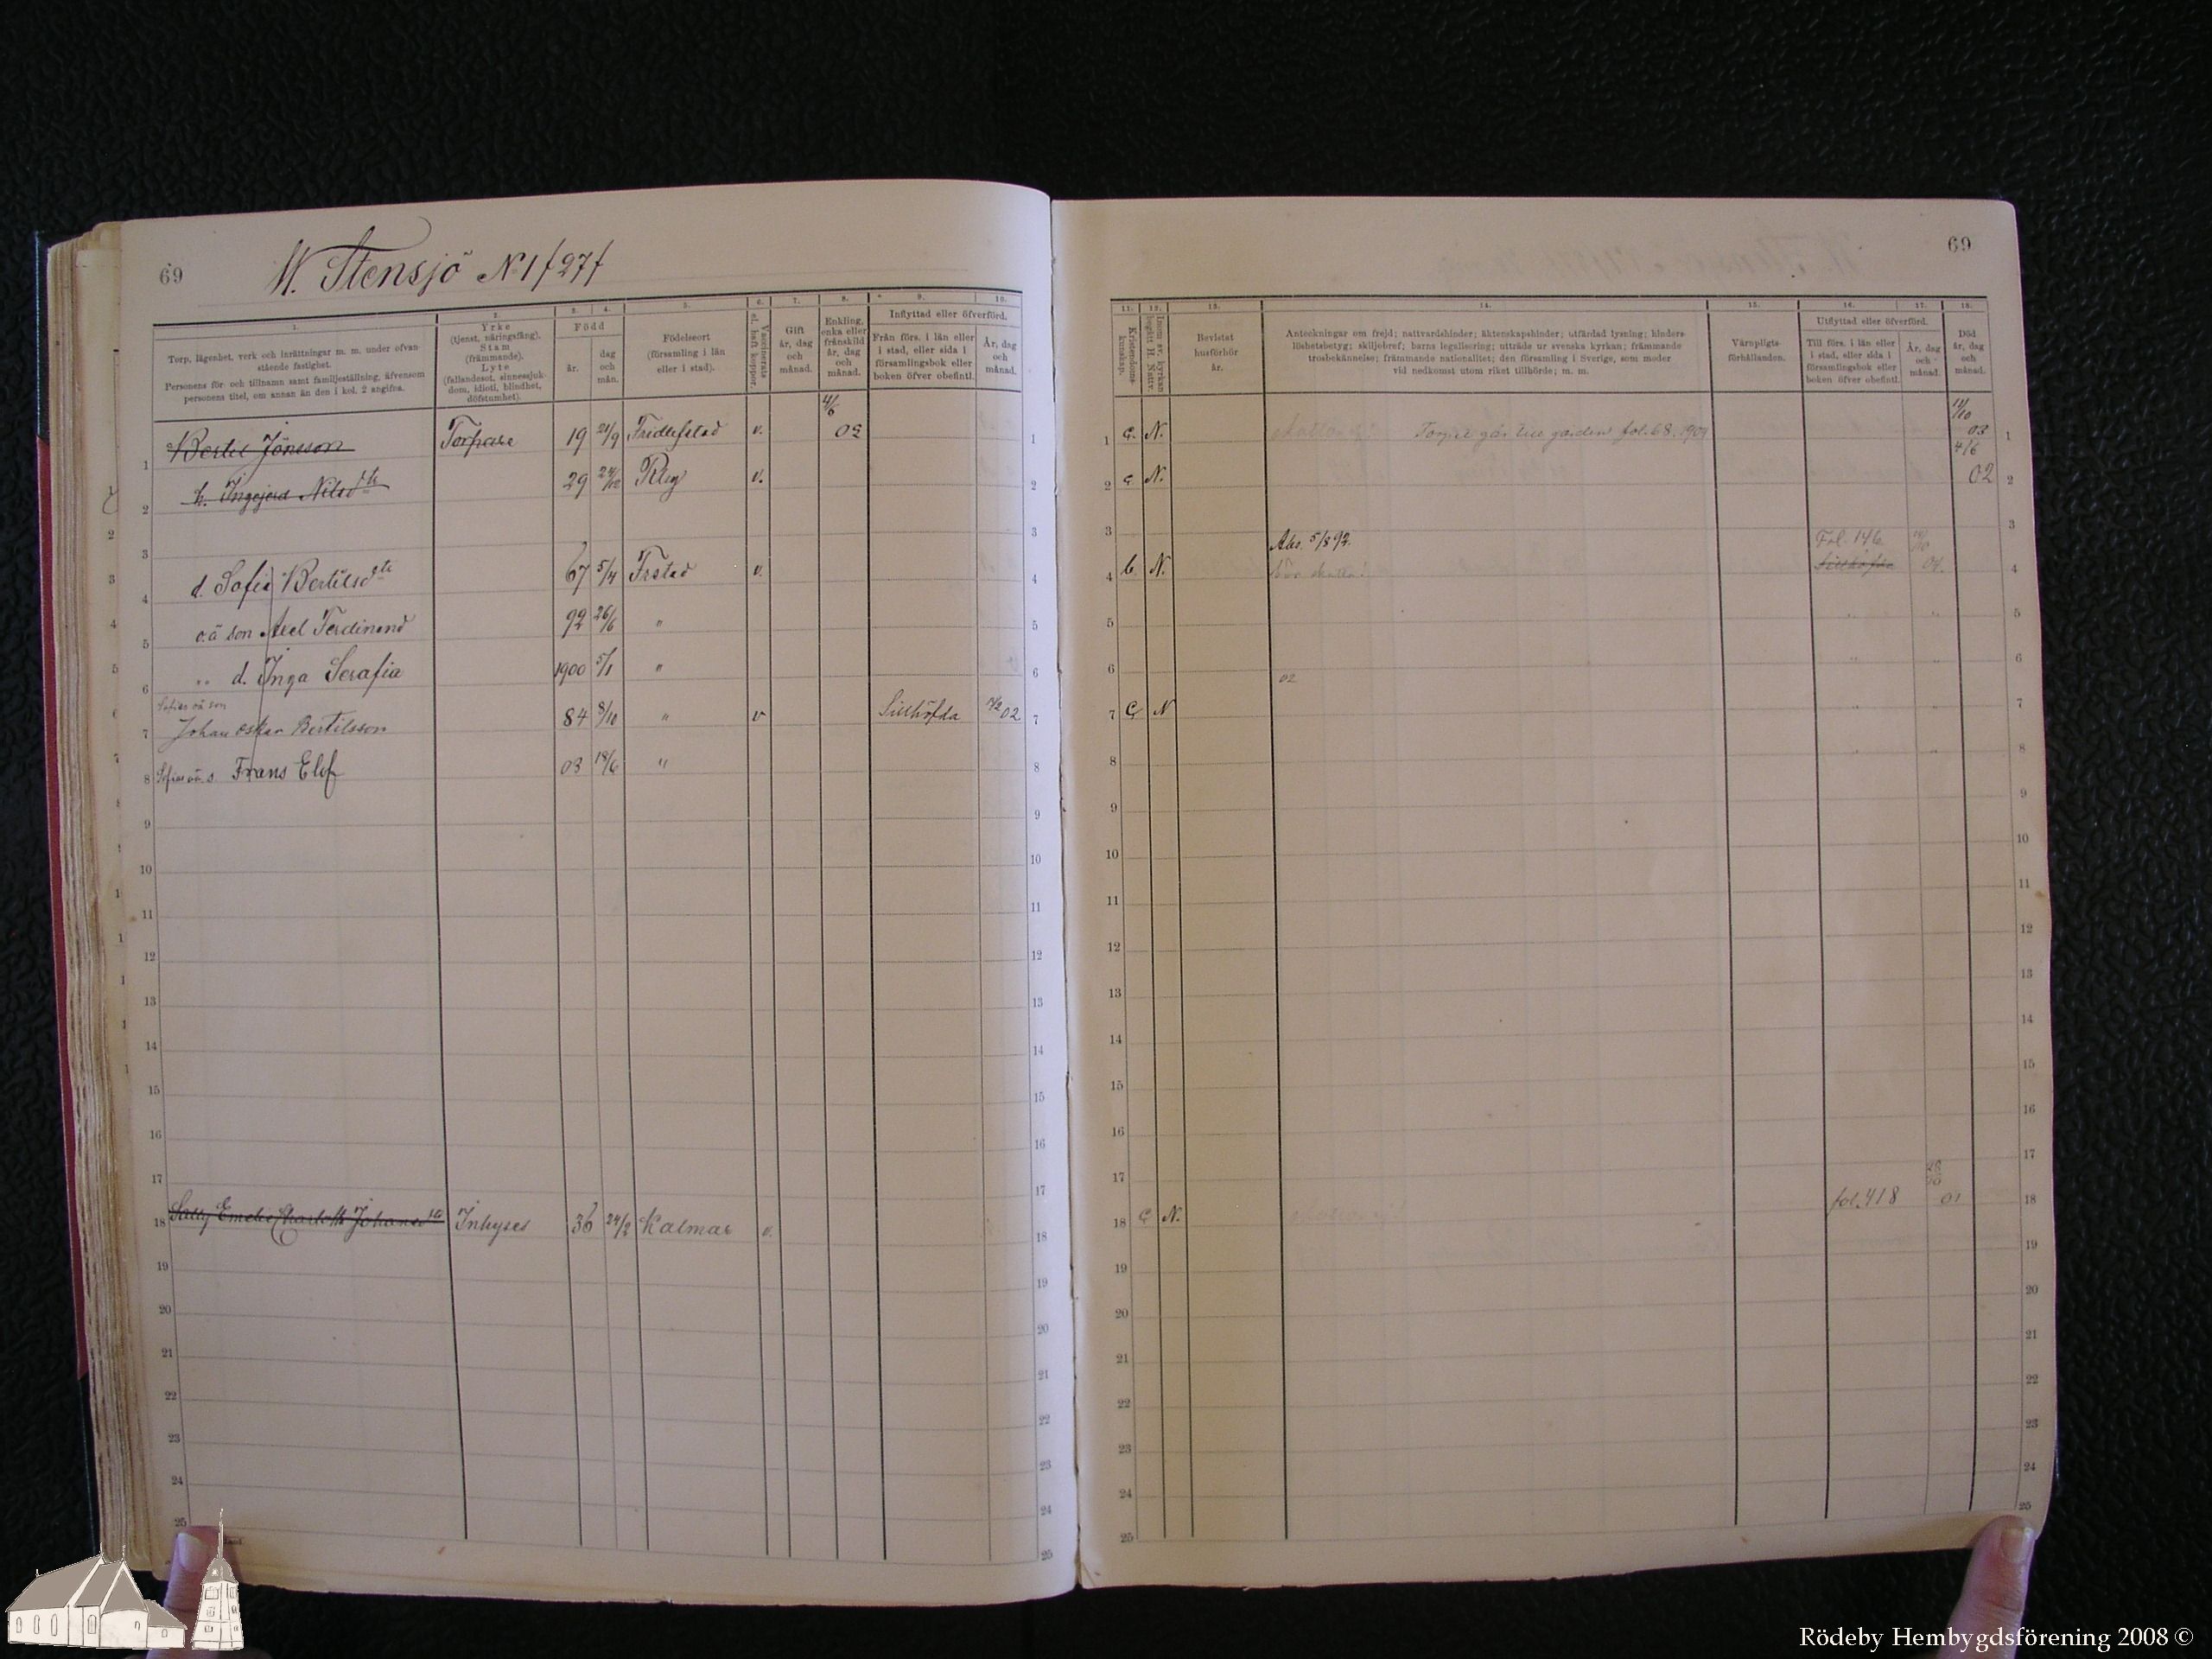 69
W. Stensjö N 1 f 27 f
1. 2. 3. 4. 5. 6. 7. 8. 9. 10.
Torp, lägenhet, verk och inrättningar m. m. under ofvan-
stående fastighet.
Personens för- och tillnamn samt familjeställning, äfvensom
personens titel, om annan än den i kol. 2 angifna.
Yrke
(tjenst, näringsfång),
Stam
(främmande).
Lyte
(fallandesot, sinnessjuk-
dom, idioti, blindhet,
döfstumhet).
Född
år.
dag
och
mån.
Födelseort
(församling i län
eller i stad).
Vaccinerats
el. haft koppor.
Gift
år, dag
och
månad.
Enkling,
enka eller
frånskild
år, dag
och
månad.
Inflyttad eller öfverförd.
Från förs. i län eller
i stad, eller sida i
församlingsbok eller
boken öfver obefintl.
År, dag
och
månad.
1 Bertil Jönsson Torpare 19 21/9 Fridlefstad v. 4/6 02 1
2 h. Ingejerd Nilsdtr 29 24/12 v. 2
3 3
4 d. Sofia Bertilsdtr 67 5/4 Frstad v. 4
5 o.ä son Axel Ferdinand 92 26/6 " 5
6 " d. Inga Serafia 1900 5/1 " 6
Sofias oä son
7 Johan Oskar Bertilsson 84 8/10 " v Sillhöfda 02 7
8 Sofias oä. s Frans Elof 03 18/6 " 8
9 9
10 10
11 11
12 12
13 13
14 14
15 15
16 16
17 17
18 Sally Emelie Charlotta Johansd Inhyses 36 24/2 Kalmar v. 18
19 19
20 20
21 21
22 22
23 23
24 24
25 25
69
11. 12. 13. 14. 15. 16. 17. 18.
Kristendoms-
kunskap.
Inom sv. kyrkan
begått H. Nattv.
Bevistat
husförhör
år.
Anteckningar om frejd; nattvardshinder; äktenskapshinder; utfärdad lysning; hinders-
löshetsbetyg; skiljebref; barns legalisering; utträde ur svenska kyrkan; främmande
trosbekännelse; främmande nationalitet; den församling i Sverige, som moder
vid nedkomst utom riket tillhörde; m. m.
Värnpligts-
förhållanden.
Utflyttad eller öfverförd.
Till förs. i län eller
i stad, eller sida i
församlingsbok eller
boken öfver obefintl.
År, dag
och
månad.
Död
år, dag
och
månad.
1 C. N. Torpet går till gården fol. 68. 03 1
2 C N. 4/6 02 2
3 Abs. 5/8 92. Fol. 146 3
4 C. N. Sillhöfda 04. 4
5 " " 5
6 02 " " 6
7 C N " " 7
8 " " 8
9 9
10 10
11 11
12 12
13 13
14 14
15 15
16 16
17 17
18 C N. fol. 418 01 18
19 19
20 20
21 21
22 22
23 23
24 24
25 25
Rödeby Hembygdsförening 2008 ©